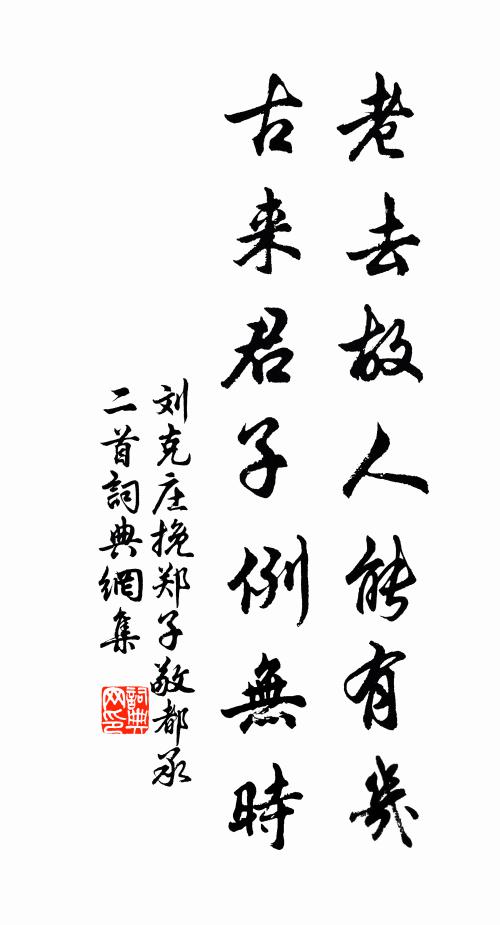 老去故人能有幾
古来君子例無時
刘克庄挽郑子敬都承
二首詞典網集
詞典
网印